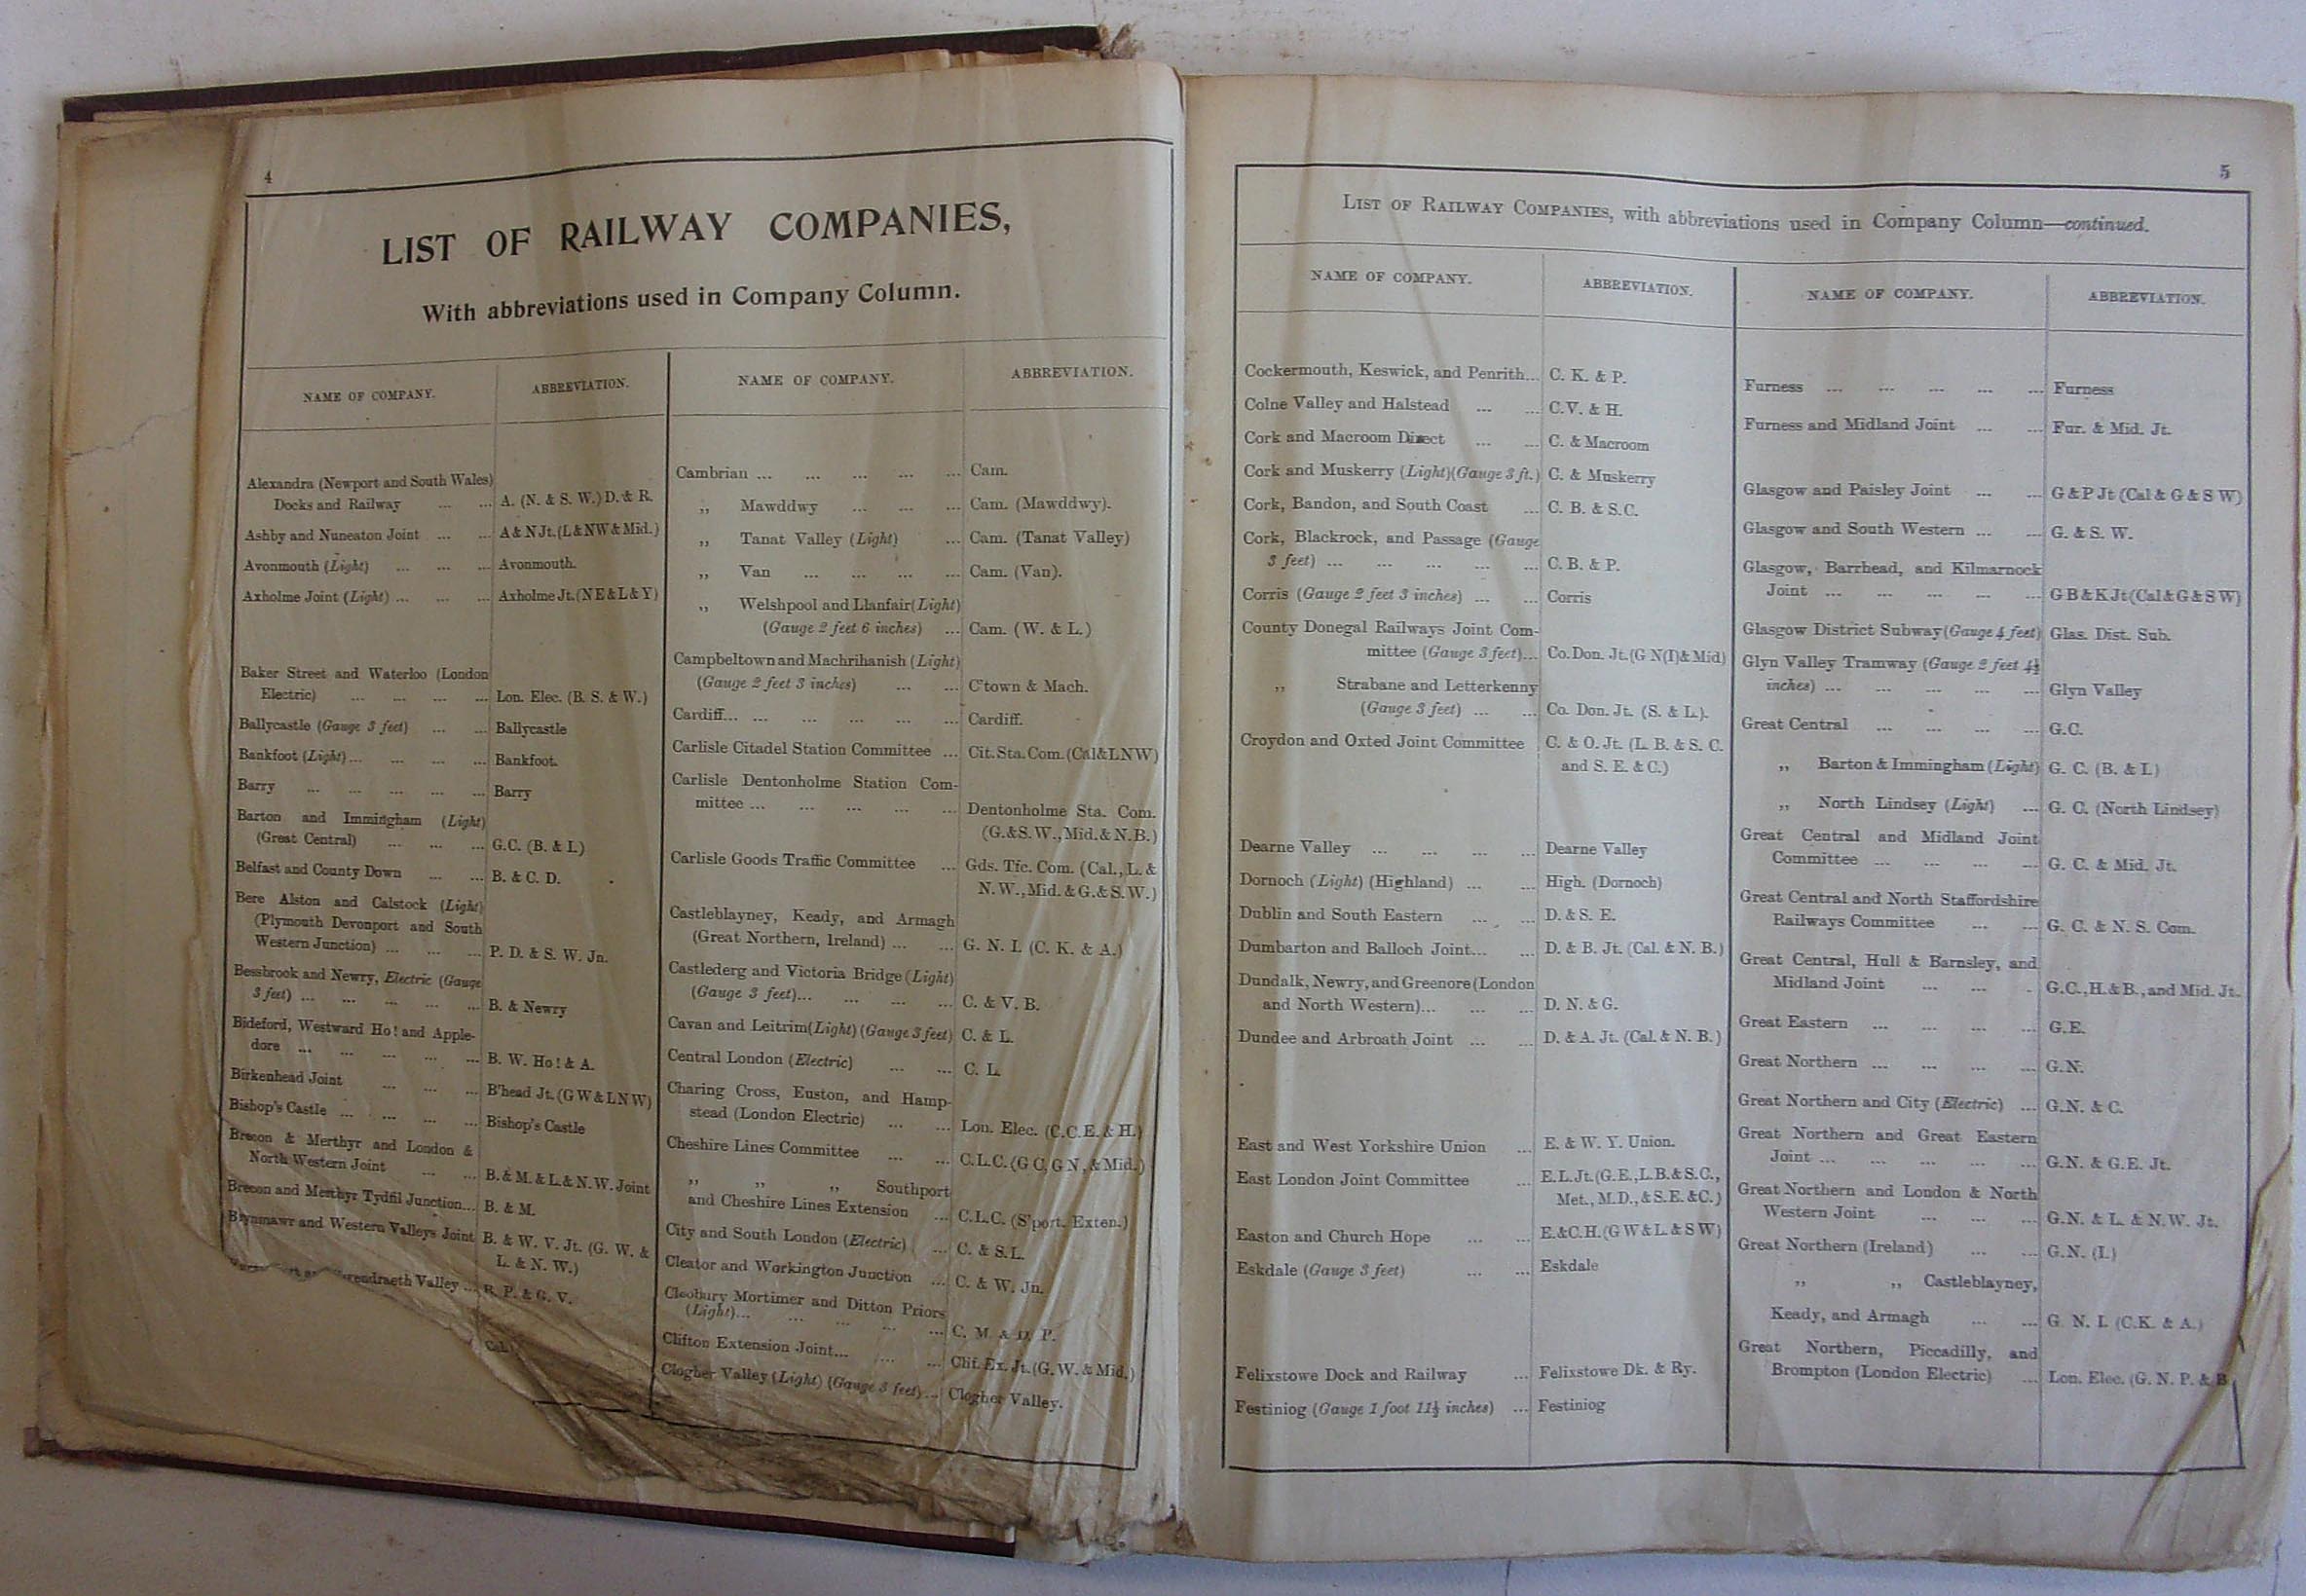 4
LIST OF RAILWAY COMPANIES,
With abbreviations used in Company Column.
NAME OF COMPANY. ABBREVIATION.
Alexandra (Newport and South Wales)
Docks and Railway ... ... A. (N. & S. W.) D. & R.
Ashby and Nuneaton Joint ... ... A & N Jt. (L & NW & Mid.)
Avonmouth (Light) ... ... ... Avonmouth.
Axholme Joint (Light) ... ... ... Axholme Jt. (N E & L & Y)
Baker Street and Waterloo (London
Electric) ... ... ... ... Lon. Elec. (B. S. & W.)
Ballycastle (Gauge 3 feet) ... ... Ballycastle
Bankfoot (Light) ... ... ... ... Bankfoot.
Barry ... ... ... ... ... Barry
Barton and Immingham (Light)
(Great Central) ... ... ... G.C. (B. & I.)
Belfast and County Down ... ... B. & C. D.
Bere Alston and Calstock (Light)
(Plymouth Devonport and South
Western Junction) ... ... ... P. D. & S. W. Jn.
Bessbrook and Newry, Electric (Gauge
3 feet) ... ... ... ... ... B. & Newry
Bideford, Westward Ho! and Apple-
dore ... ... ... ... ... B. W. Ho! & A.
Birkenhead Joint ... ... ... B'head Jt. (G W & L N W)
Bishop's Castle ... ... ... ... Bishop's Castle
Brecon & Merthyr and London &
North Western Joint ... ... B. & M. & L. & N. W. Joint
Brecon and Merthyr Tydfil Junction... B. & M.
Brynmawr and Western Valleys Joint B. & W. V. Jt. (G. W. &
L. & N. W.)
Valley ... P. & G. V.
Cal.)
NAME OF COMPANY. ABBREVIATION.
Cambrian ... ... ... ... ... Cam.
,, Mawddwy ... ... ... Cam. (Mawddwy).
,, Tanat Valley (Light) ... Cam. (Tanat Valley)
,, Van ... ... ... ... Cam. (Van).
,, Welshpool and Llanfair (Light)
(Gauge 2 feet 6 inches) ... Cam. (W. & L.)
Campbeltown and Machrihanish (Light)
(Gauge 2 feet 3 inches) ... ... C'town & Mach.
Cardiff... ... ... ... ... ... Cardiff.
Carlisle Citadel Station Committee ... Cit. Sta. Com. (Cal & L N W)
Carlisle Dentonholme Station Com-
mittee ... ... ... ... ... Dentonholme Sta. Com.
(G. & S. W., Mid. & N. B.)
Carlisle Goods Traffic Committee ... Gds. Tfc. Com. (Cal., L. &
N. W., Mid. & G. & S. W.)
Castleblayney, Keady, and Armagh
(Great Northern, Ireland) ... ... G. N. I. (C. K. & A.)
Castlederg and Victoria Bridge (Light)
(Gauge 3 feet)... ... ... ... C. & V. B.
Cavan and Leitrim (Light) (Gauge 3 feet) C. & L.
Central London (Electric) ... ... C. L.
Charing Cross, Euston, and Hamp-
stead (London Electric) ... ... Lon. Elec. (C.C.E. & H.)
Cheshire Lines Committee ... ... C.L.C. (G C, G N, & Mid.)
,, ,, ,, Southport
and Cheshire Lines Extension ... C.L.C. (S'port. Exten.)
City and South London (Electric) ... C. & S. L.
Cleator and Workington Junction ... C. & W. Jn.
Cleobury Mortimer and Ditton Priors
(Light)... ... ... ... ... C. M. & D. P.
Clifton Extension Joint... ... ... Clif. Ex. Jt. (G. W. & Mid.)
Clogher Valley (Light) (Gauge 3 feet) ... Clogher Valley.
5
LIST OF RAILWAY COMPANIES, with abbreviations used in Company Column—continued.
NAME OF COMPANY. ABBREVIATION.
Cockermouth, Keswick, and Penrith... C. K. & P.
Colne Valley and Halstead ... ... C.V. & H.
Cork and Macroom Direct ... ... C. & Macroom
Cork and Muskerry (Light) (Gauge 3 ft.) C. & Muskerry
Cork, Bandon, and South Coast ... C. B. & S.C.
Cork, Blackrock, and Passage (Gauge
3 feet) ... ... ... ... ... C. B. & P.
Corris (Gauge 2 feet 3 inches) ... ... Corris
County Donegal Railways Joint Com-
mittee (Gauge 3 feet)... Co. Don. Jt. (G N (I) & Mid)
,, Strabane and Letterkenny
(Gauge 3 feet) ... ... Co. Don. Jt. (S. & L.).
Croydon and Oxted Joint Committee C. & O. Jt. (L. B. & S. C.
and S. E. & C.)
Dearne Valley ... ... ... ... Dearne Valley
Dornoch (Light) (Highland) ... ... High. (Dornoch)
Dublin and South Eastern ... ... D. & S. E.
Dumbarton and Balloch Joint... ... D. & B. Jt. (Cal. & N. B.)
Dundalk, Newry, and Greenore (London
and North Western)... ... ... D. N. & G.
Dundee and Arbroath Joint ... ... D. & A. Jt. (Cal. & N. B.)
East and West Yorkshire Union ... E. & W. Y. Union.
East London Joint Committee ... E.L. Jt. (G.E., L.B. & S.C.,
Met., M.D., & S.E. & C.)
Easton and Church Hope ... ... E. & C.H. (G W & L. & S W)
Eskdale (Gauge 3 feet) ... ... Eskdale
Felixstowe Dock and Railway ... Felixstowe Dk. & Ry.
Festiniog (Gauge 1 foot 11½ inches) ... Festiniog
NAME OF COMPANY. ABBREVIATION.
Furness ... ... ... ... ... Furness
Furness and Midland Joint ... ... Fur. & Mid. Jt.
Glasgow and Paisley Joint ... ... G & P Jt (Cal & G & S W)
Glasgow and South Western ... ... G. & S. W.
Glasgow, Barrhead, and Kilmarnock
Joint ... ... ... ... ... G B & K Jt (Cal & G & S W)
Glasgow District Subway (Gauge 4 feet) Glas. Dist. Sub.
Glyn Valley Tramway (Gauge 2 feet 4½
inches) ... ... ... ... ... Glyn Valley
Great Central ... ... ... ... G.C.
,, Barton & Immingham (Light) G. C. (B. & I.)
,, North Lindsey (Light) ... G. C. (North Lindsey)
Great Central and Midland Joint
Committee ... ... ... ... G. C. & Mid. Jt.
Great Central and North Staffordshire
Railways Committee ... ... G. C. & N. S. Com.
Great Central, Hull & Barnsley, and
Midland Joint ... ... . G.C., H. & B., and Mid. Jt.
Great Eastern ... ... ... ... G.E.
Great Northern ... ... ... ... G.N.
Great Northern and City (Electric) ... G.N. & C.
Great Northern and Great Eastern
Joint ... ... ... ... ... G.N. & G.E. Jt.
Great Northern and London & North
Western Joint ... ... ... G.N. & L. & N.W. Jt.
Great Northern (Ireland) ... ... G.N. (I.)
,, ,, Castleblayney,
Keady, and Armagh ... ... G. N. I. (C.K. & A.)
Great Northern, Piccadilly, and
Brompton (London Electric) ... Lon. Elec. (G. N. P. & B